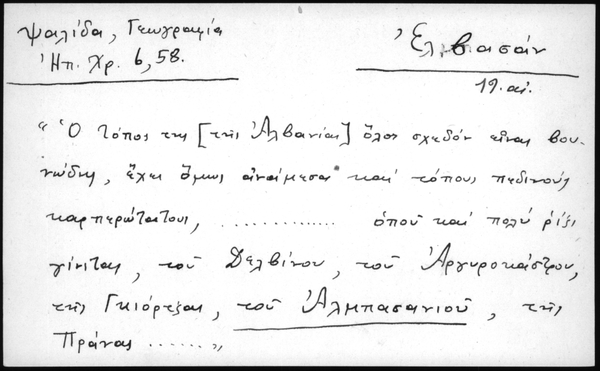 Ψαλίδα, Γεωγραφία
Ἠπ. Χρ. 6, 58.
Ἐλβασάν
19. αἰ.
"Ὁ τόπος της [τῆς Ἀλβανίας] ὅλος σχεδόν εἶναι βου-
νώδης, ἔχει ὅμως ἀνάμεσα καί τόπους πεδινούς
καρπερώτατους, .............. ὁποῦ καί πολύ ρίζι
γίνεται, τοῦ Δελβίνου, τοῦ Ἀργυροκάστρου,
τῆς Γκιόρτζας, τοῦ Ἀλμπασανιοῦ, τῆς
Πράνας ......."